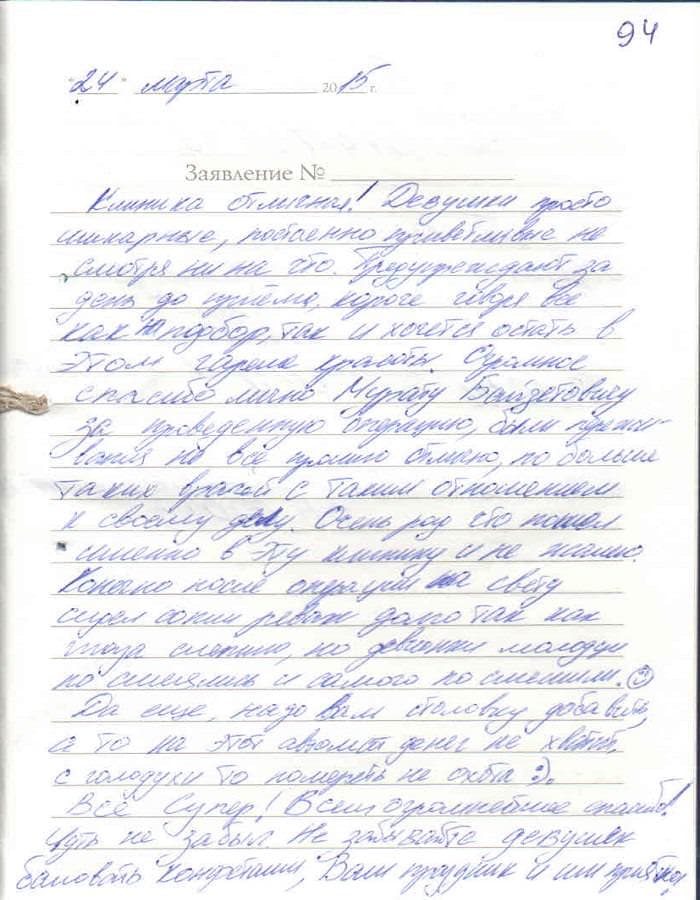 94
"24" марта 2015 г.
Заявление №
Клиника отличная! Девушки просто
шикарные, постоенно приветливые не
смотря ни на что. Предупреждают за
день до приёма, короче говоря все
как на подбор, так и хочется остать в
этом гареме красоты. Огромное
спасибо лично Мурату Баизетовичу
за проведенную операцию, были пережи-
вания но всё прошло отлично, по больше
таких врачей с таким отношением
к своему делу. Очень рад что пошел
именно в эту клинику и не жалею.
Конечно после операции на свету
сидел долго так как
глаза слепило, но девченки молодцы
по смеялись и самого по смешили.
Да еще, надо Вам столовку добавить,
а то на этот автомат денег не хватит,
с голодухи то помереть не охота :).
Всё Супер! Всем огромнейшее спасибо!
Чуть не забыл. Не забывайте девушек
баловать конфетами, Вам праздник и им приятно